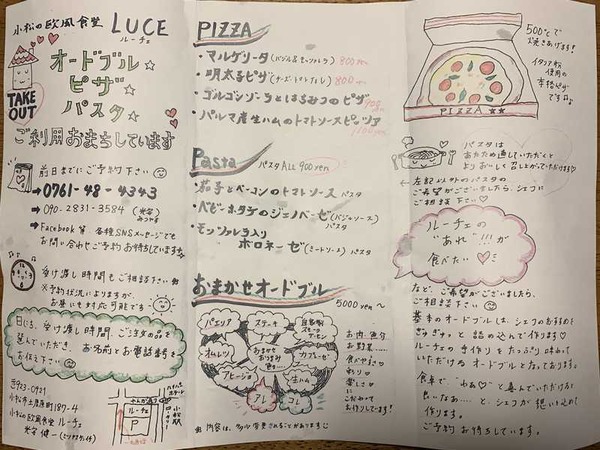 小松の欧風食堂 LUCE
ルーチェ
オードブル
ピザ
パスタ
TAKE OUT
ご利用おまちしています
前日までにご予約下さい
→0761-48-4343
→090-2831-3584
→Facebook等 各種SNSメッセージでも
お問い合わせご予約お待ちしています
受け渡し時間もご相談下さい
※予約状況によりますが、
お昼にも対応可能です
日にち、受け渡し時間、ご注文の品を
選んでいただき、お名前とお電話番号を
お伝え下さい
〒923-0921
小松市土居原町187-4
小松の欧風食堂 ルーチェ
ルーチェ
P
小松駅
PIZZA
・マルゲリータ(バジル&モッツァレラ) 800yen
・明太子ピザ 800yen
・ゴルゴンゾーラとはちみつのピザ
・パルマ産生ハムのトマトソースピッツァ
Pasta パスタALL 900yen
・茄子とベーコンのトマトソース パスタ
・ベビーホタテのジェノベーゼ(バジルソース) パスタ
・モッツァレラ入り
ボロネーゼ(ミートソース) パスタ
おまかせオードブル
5000yen〜
パエリア
ステーキ
自家製
オムレツ
おまかせ
カプレーゼ
アヒージョ
生ハム
アレ
コレ
お肉、魚介
お野菜……
食べやすさ
彩り
楽しさ
に
こだわって
お作りしています!
※内容は、多少変更されることがあります
500℃で
焼きあげます!
イタリア粉
使用の
本格ピザ
ですよ
PIZZA
パスタは
あたため直していただくと
よりおいしく召し上がっていただけます
←左記以外のパスタの
ご希望がございましたら、シェフに
ご相談下さい
ルーチェの
"あれ"!!!が
食べたい
など、ご希望がございましたら、
ご相談下さい
基本のオードブルは、シェフのおすすめを
ぎゅぎゅっと詰め込んで作ります
ルーチェの手作りをたっぷり味わって
いただけるオードブルとなっております。
食卓で"わぁ♡"と喜んでいただけると
良いなぁ…と、シェフが想いを込めて
作ります。
ご予約お待ちしています。